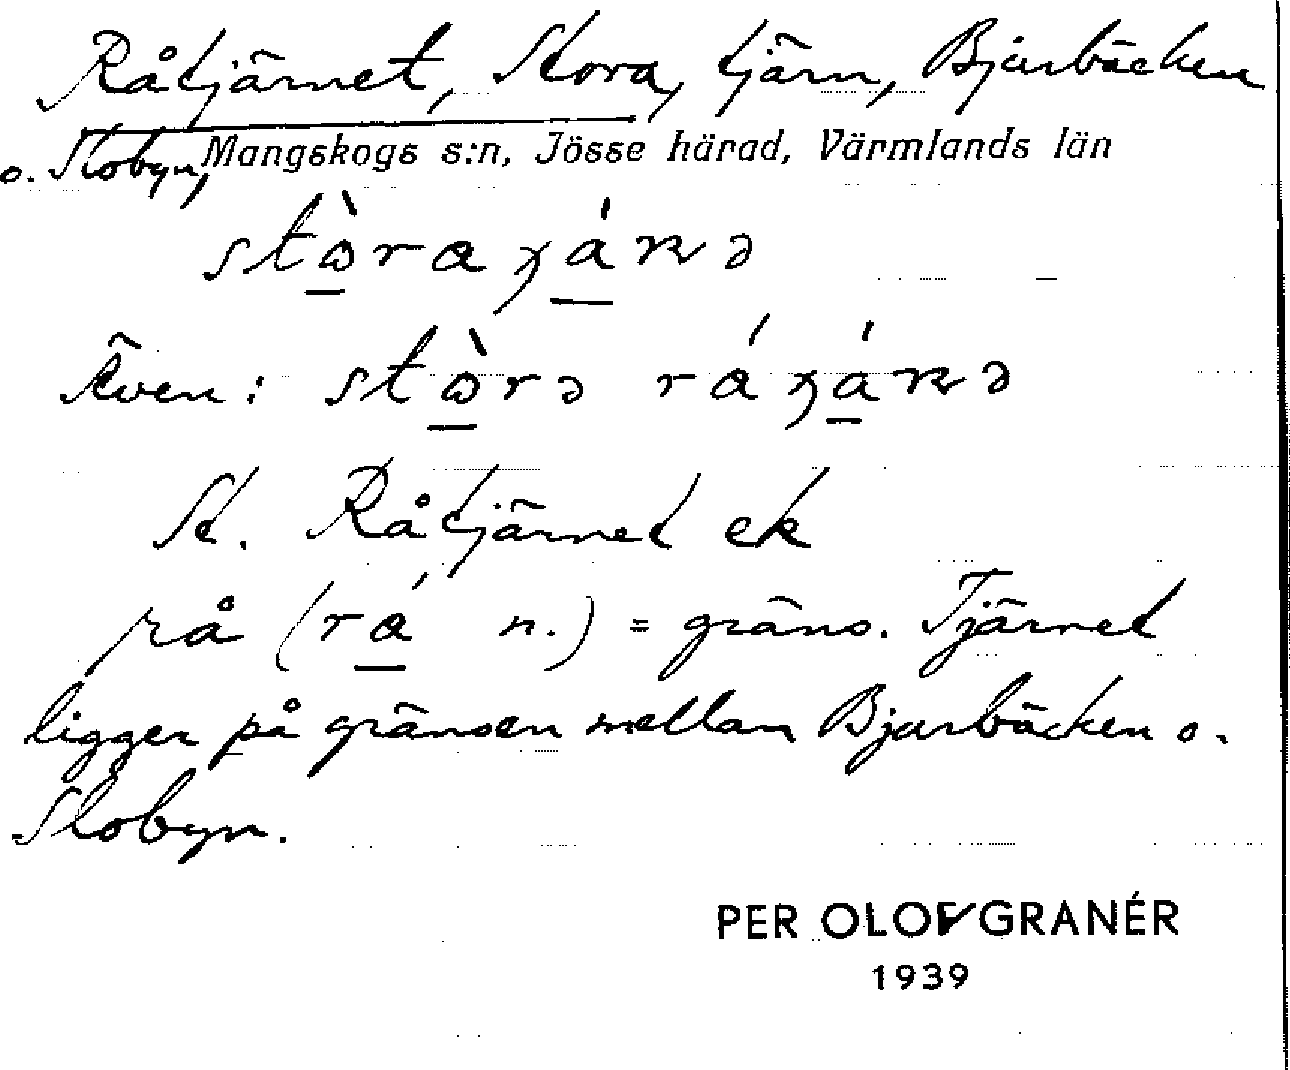 Råtjärnet, Stora, tjärn, Bjurbäcken
o. Slobyn, Mangskogs s:n, Jösse härad, Värmlands län
Även:
St. Råtjärnet ek
rå (rá n.) = gräns. Tjärnet
ligger på gränsen mellan Bjurbäcken o.
Slobyn.
PER OLOF GRANÉR
1939